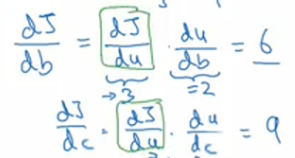 dJ/db = dJ/du · du/db = 6
→ 3 = 2
dJ/dc · dJ/du · du/dc = 9